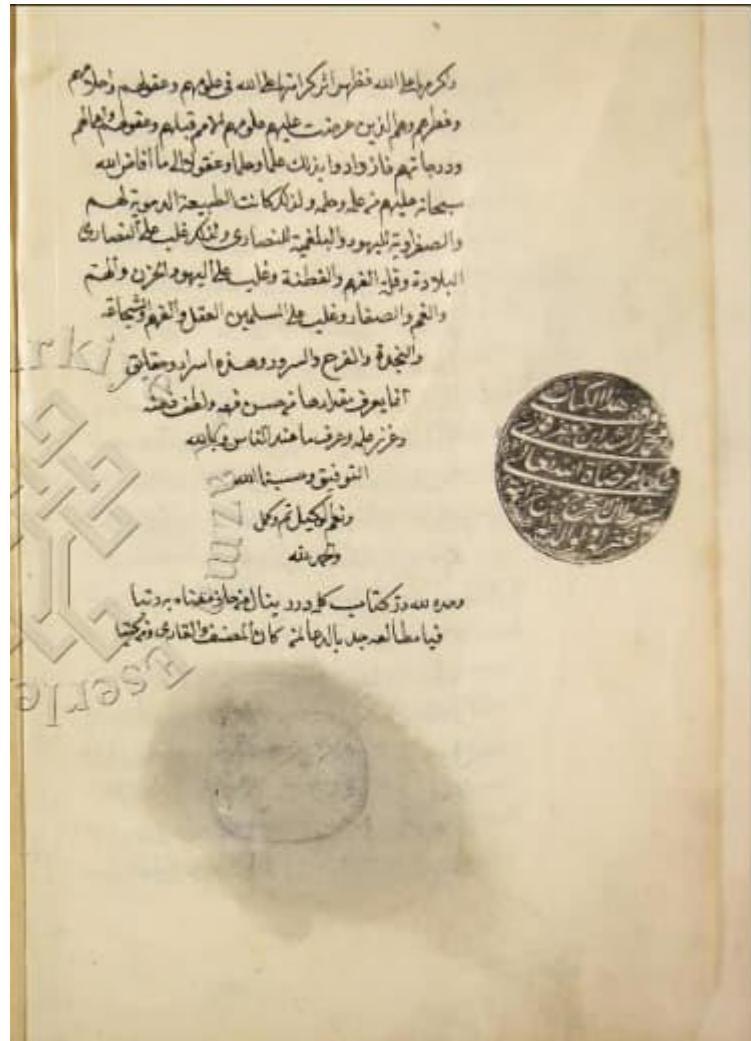 واكرمها على الله فظهر اثر كرامتها على الله في علومهم وعقولهم واحلامهم
وفطرهم وهم الذين عرضت عليهم علوم الامم قبلهم وعقولهم واعمالهم
ودرجاتهم فازدادوا بذلك علما وحلما وعقولا الى ما افاض الله
سبحانه عليهم من علمه وحلمه ولذلك كانت الطبيعة الدموية لهم
والصفراوية لليهود والبلغمية للنصارى ولذلك غلب على النصارى
البلادة وقلة الفهم والفطنة وغلب على اليهود الحزن والهم
والغم والصغار وغلب على المسلمين العقل والفهم والشجاعة
والنجدة والفرح والسرور وهذه اسرار وحقايق
انما يعرف مقدارها من حسن فهمه ولطف ذهنه
وغزر علمه وعرف ما عند الناس وبالله
التوفيق وحسبنا الله
ونعم الوكيل تم وكمل
والحمد لله
وحده لله در كتاب كله درر ينال من جاز معناه به رتبا
فيا مطالعه جد بالدعا لمن كان المصنف والقارى ومن كتبا
هذا الكتاب
Türkiye
Yazma
Eserler